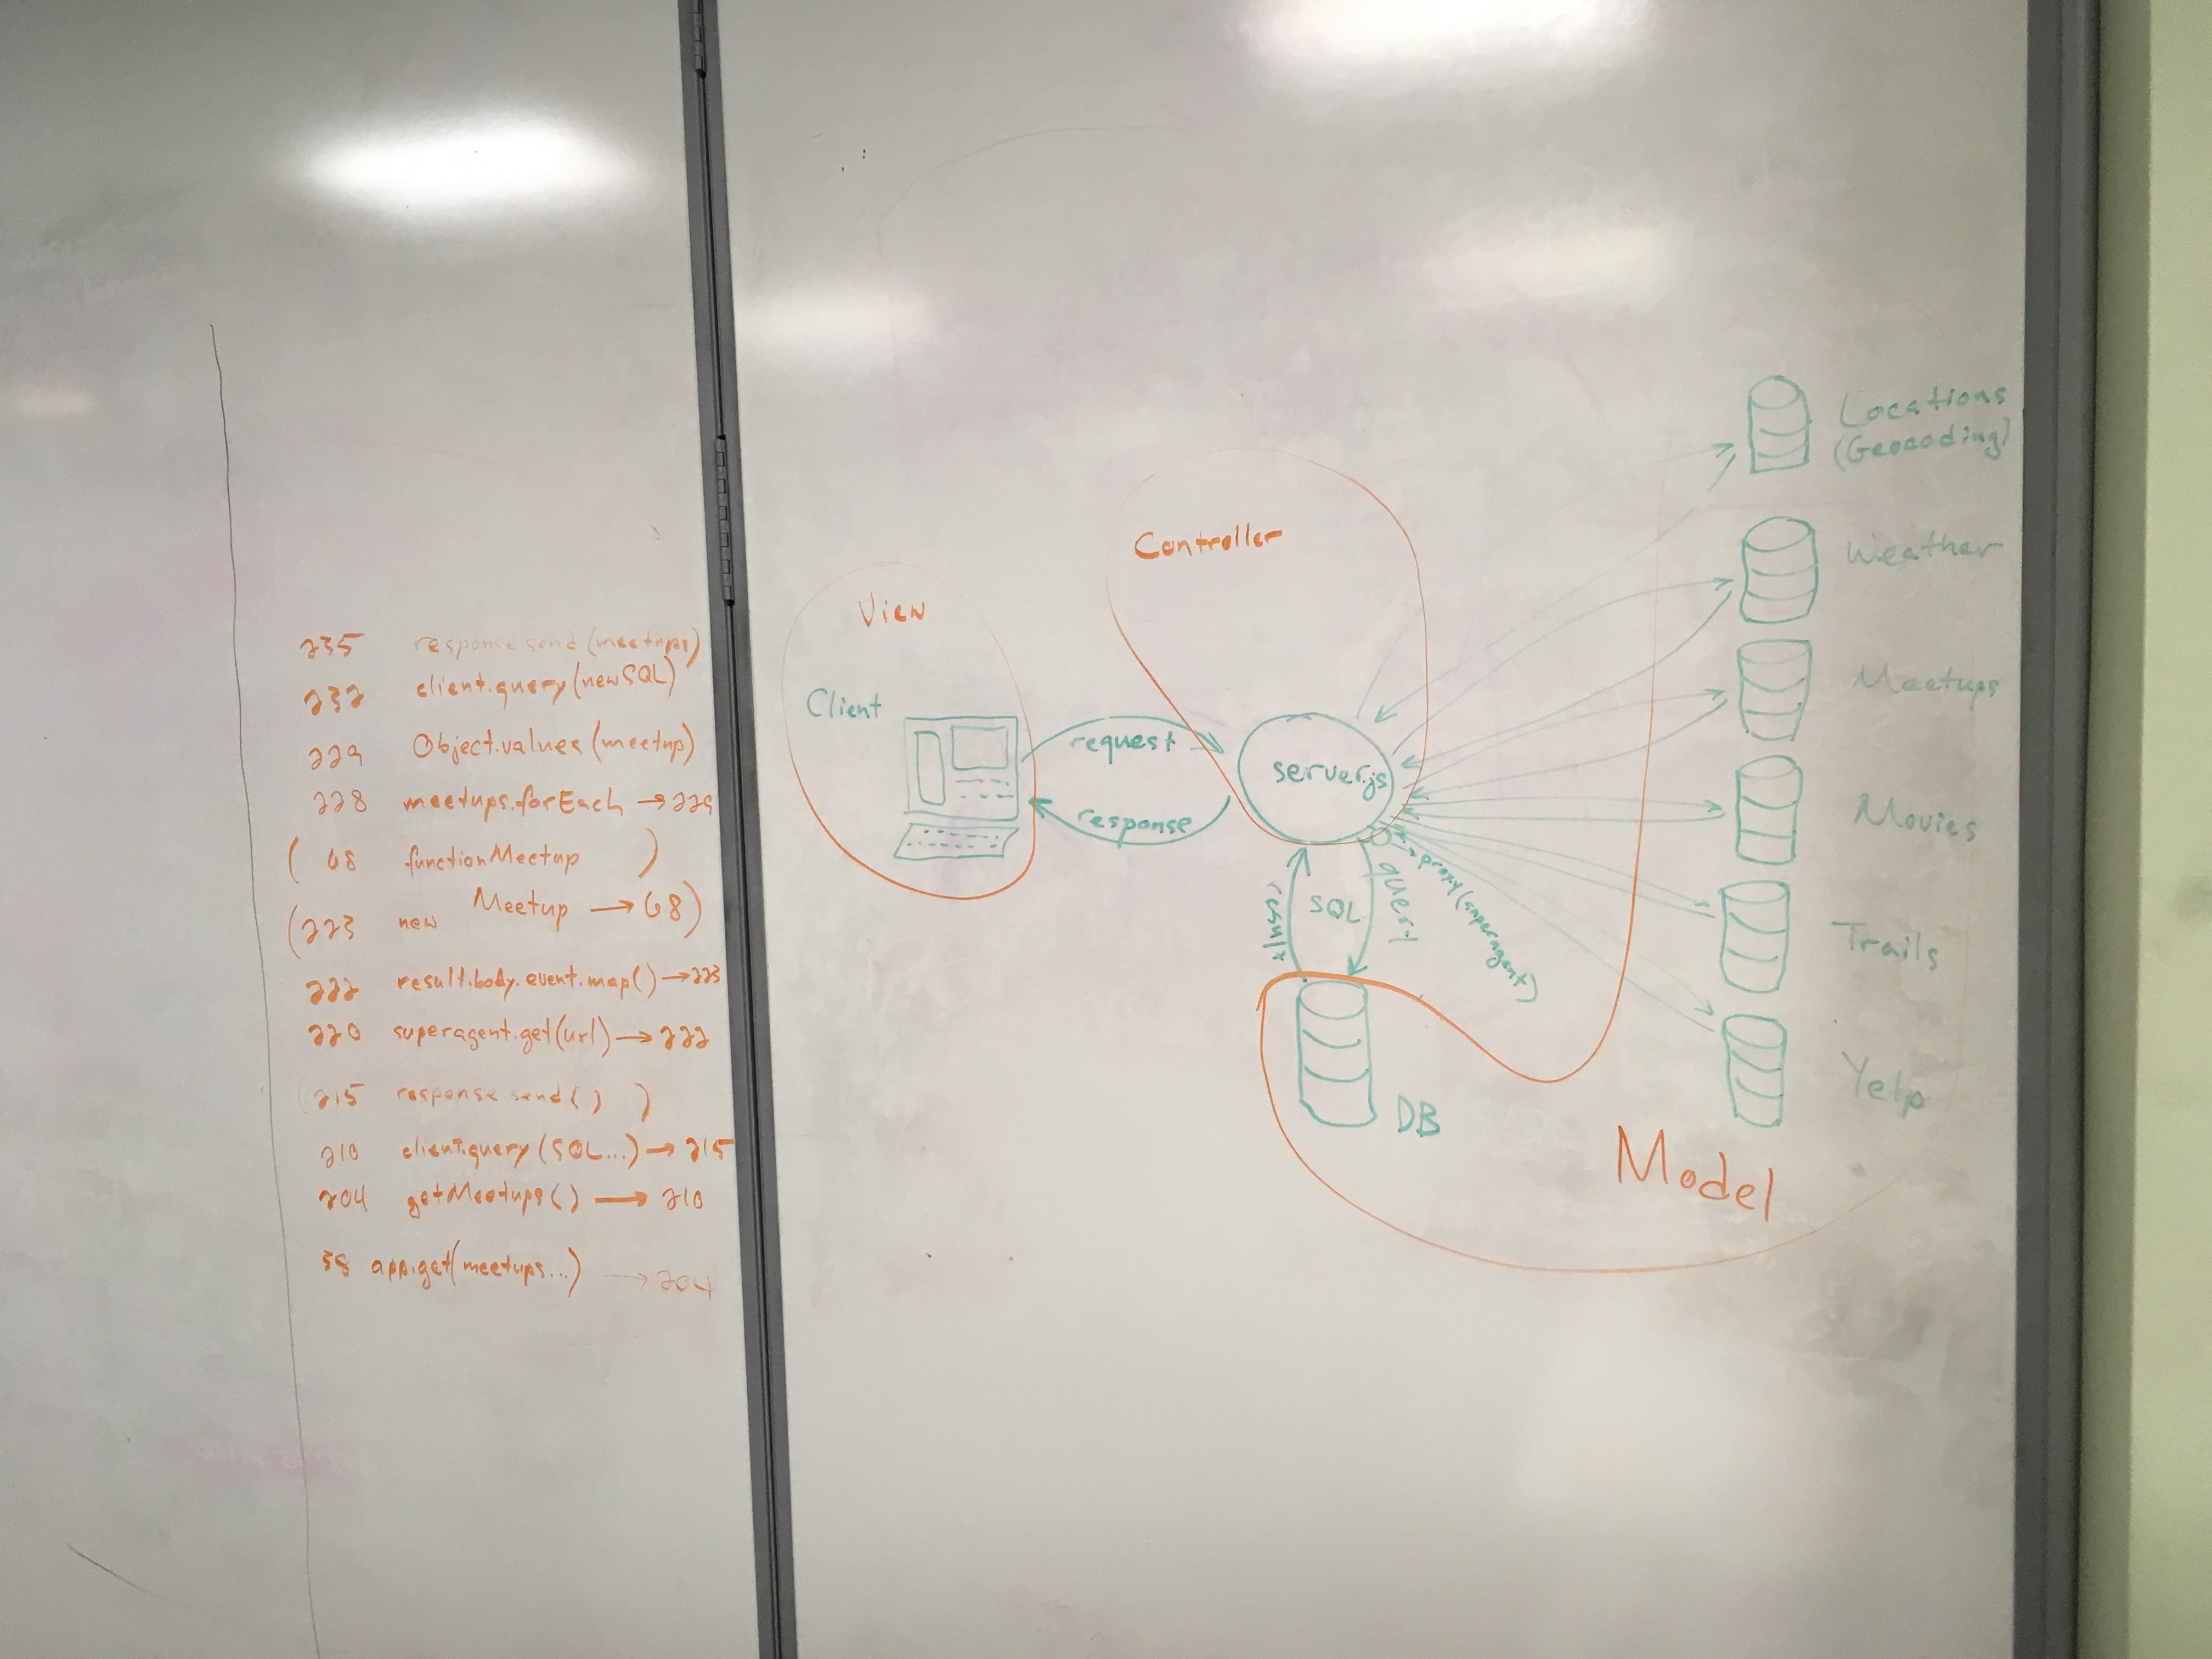 235 response.send(meetups)
232 client.query(newSQL)
229 Object.values(meetup)
228 meetups.forEach → 229
( 68 functionMeetup )
(223 new Meetup → 68)
222 result.body.event.map() → 223
220 superagent.get(url) → 222
(215 response.send() )
210 client.query(SQL...) → 215
204 getMeetups() → 210
38 app.get(meetups...) → 204
View
Client
Controller
request
response
server.js
results
SQL
query
proxy(superagent)
DB
Model
Locations
(Geocoding)
Weather
Meetups
Movies
Trails
Yelp